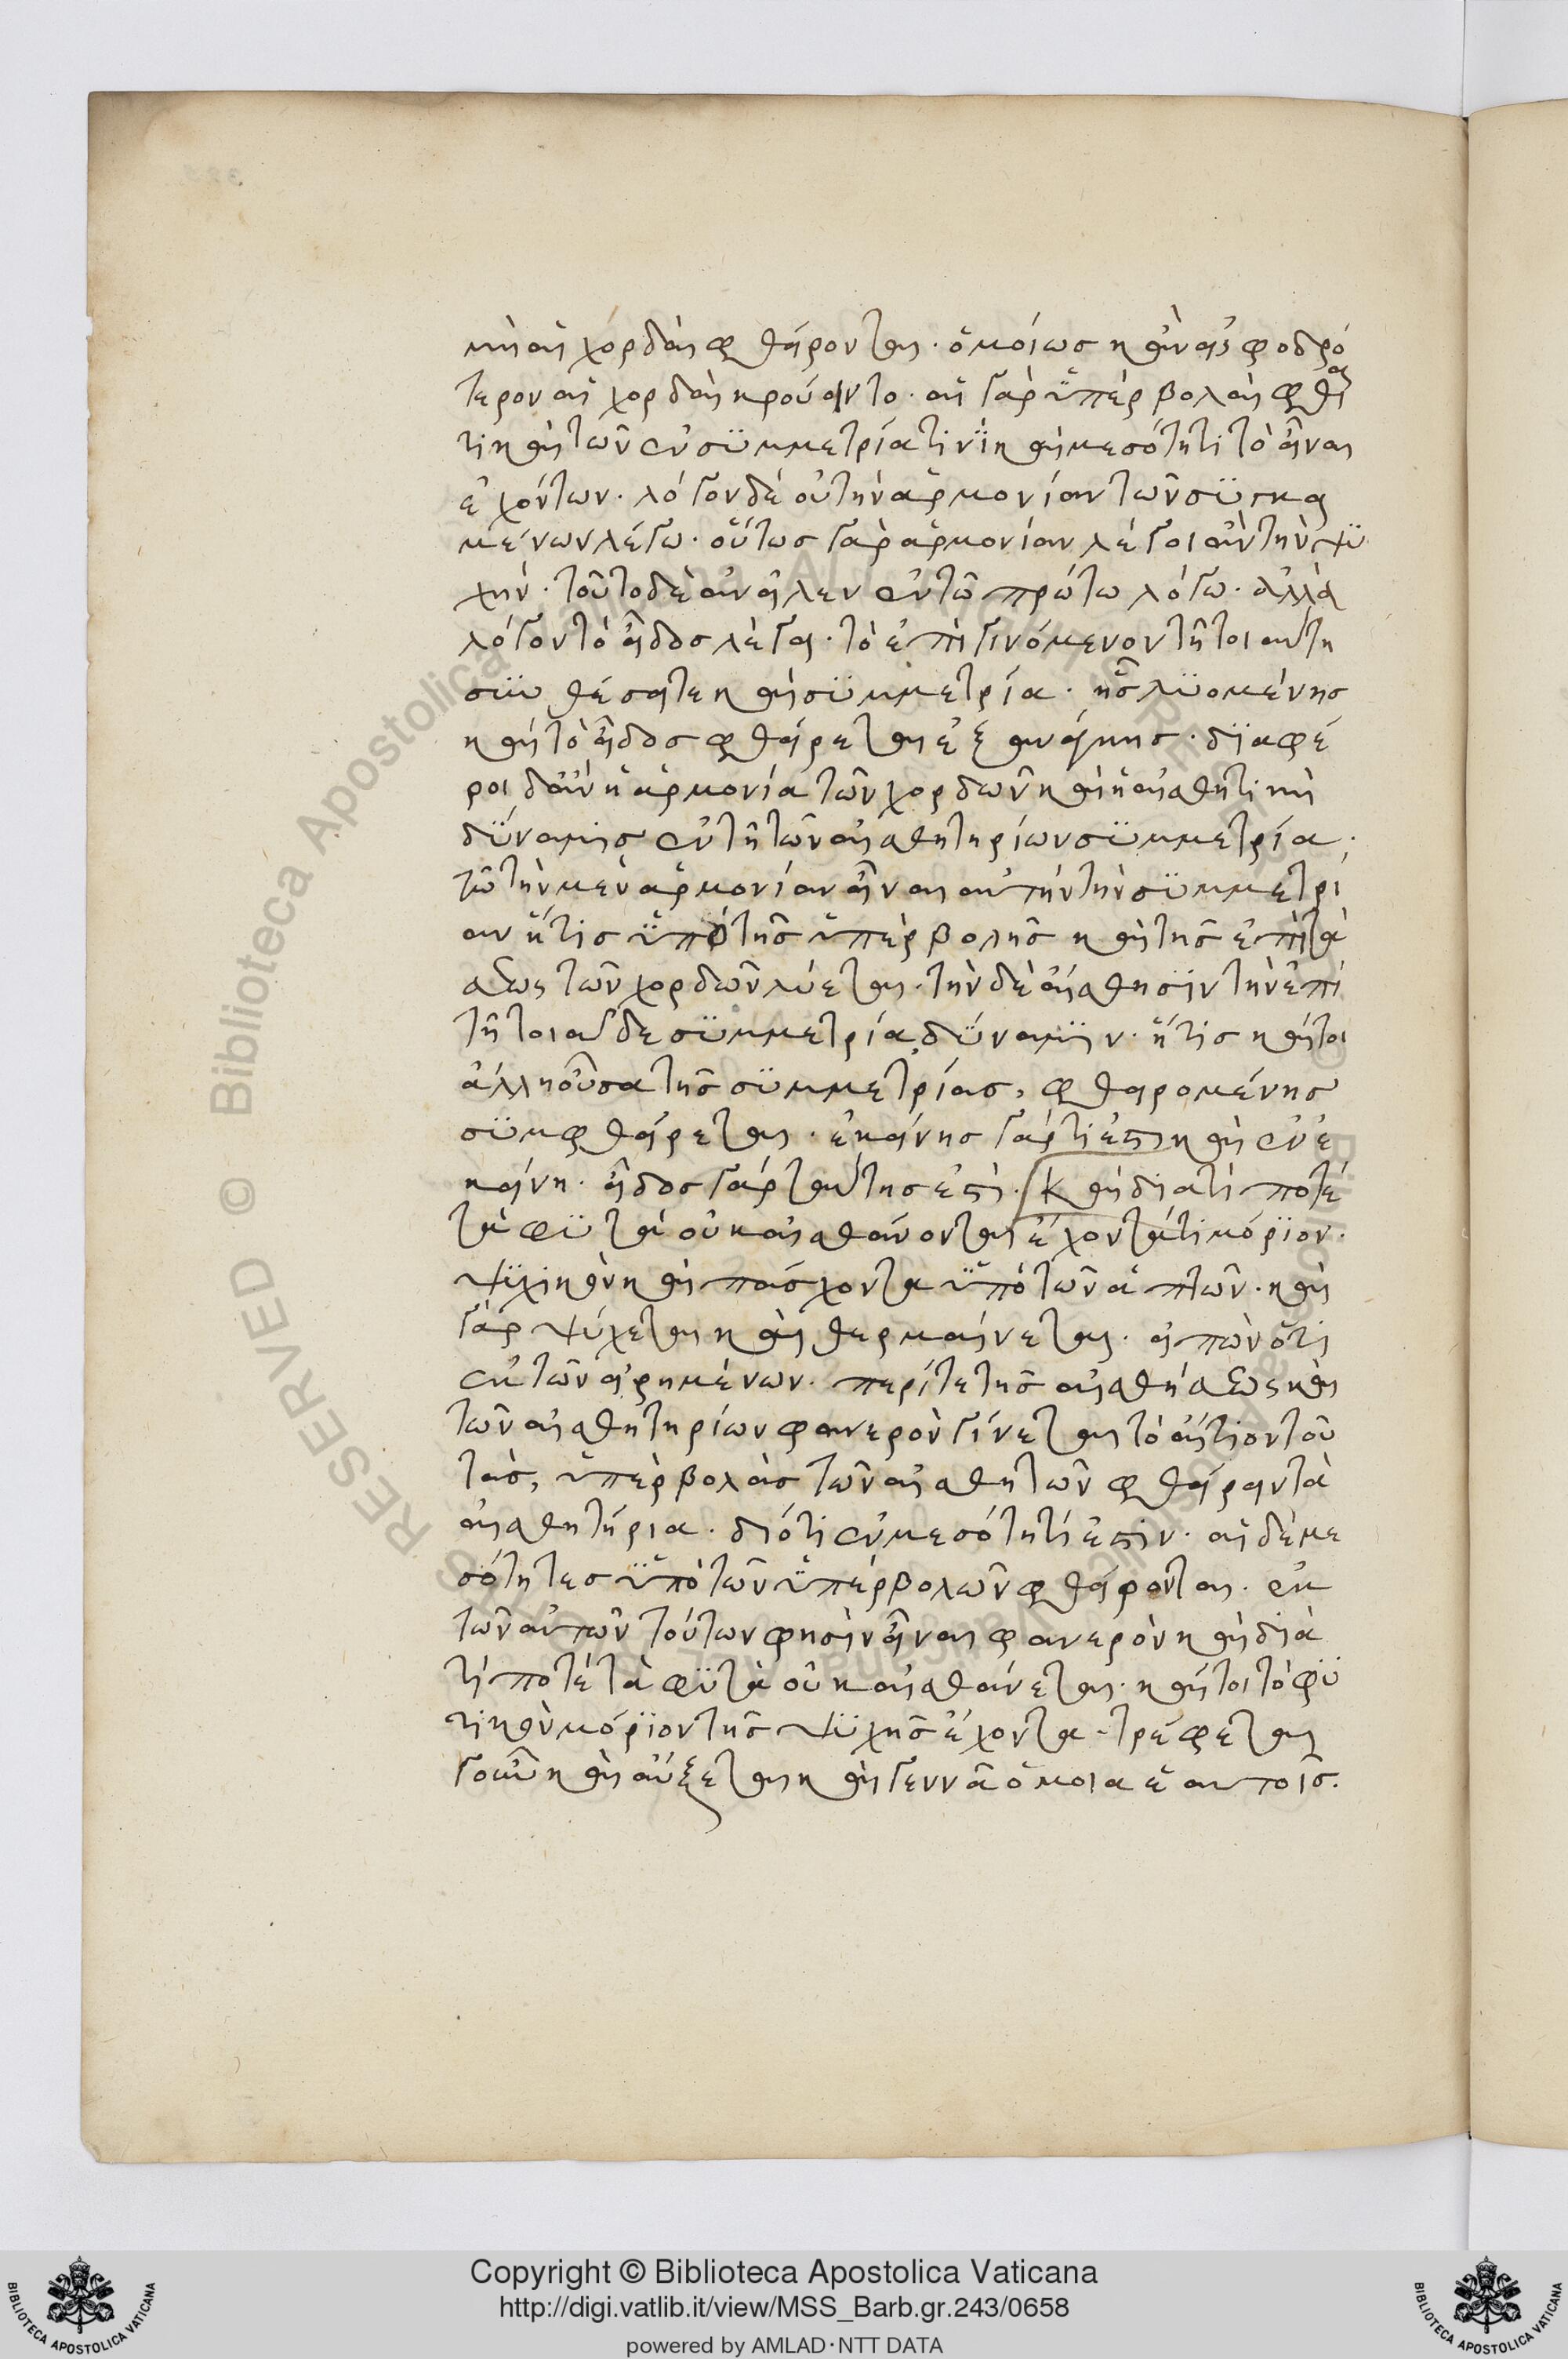 μὴ αἱ χορδαὶ φθείρονται. ὁμοίως κἂν εἰ σφοδρό
τερον αἱ χορδαὶ κρούοιντο. αἱ γὰρ ὑπερβολαὶ φθαρ
τικαὶ τῶν ἐν συμμετρία τινὶ καὶ μεσότητι τὸ εἶναι
ἐχόντων. λόγον δὲ οὐ τὴν ἁρμονίαν τῶν συγκει
μένων λέγω. οὕτως γὰρ ἁρμονίαν λέγοι ἂν τὴν ψυ
χήν. τοῦτο δὲ ἀνεῖλεν ἐν τῶ πρώτω λόγω. ἀλλὰ
λόγον τὸ εἶδος λέγει. τὸ ἐπιγινόμενον τῆ τοιαύτη
συνθέσει τε καὶ συμμετρία. ἧς λυομένης
καὶ τὸ εἶδος φθείρεται ἐξ ἀνάγκης. διαφέ
ροι δ' ἂν ἡ ἁρμονία τῶν χορδῶν καὶ ἡ αἰσθητικὴ
δύναμις ἐν τῆ τῶν αἰσθητηρίων συμμετρία.
τῶ τὴν μὲν ἁρμονίαν εἶναι αὐτὴν τὴν συμμετρί
αν ἥτις ὑπὸ τῆς ὑπερβολῆς καὶ τῆς ἐπιτά
σεως τῶν χορδῶν λύεται. τὴν δὲ αἴσθησιν τὴν ἐπὶ
τῆ τοιᾶδε συμμετρία δύναμιν. ἥτις καίτοι
ἄλλη οὖσα τῆς συμμετρίας, φθειρομένης
συμφθείρεται. ἐκείνης γάρ τί ἐστι καὶ ἐν ἐ
κείνη. εἶδος γὰρ ταύτης ἐστί. Καὶ διατί ποτε
τὰ φυτὰ οὐκ αἰσθάνονται ἔχοντά τι μόριον.
ψυχικὸν καὶ πάσχοντα ὑπὸ τῶν ἁπτῶν. καὶ
γὰρ ψύχεται καὶ θερμαίνεται. εἰπὼν ὅτι
ἐκ τῶν εἰρημένων. περί τε τῆς αἰσθήσεως καὶ
τῶν αἰσθητηρίων φανερὸν γίνεται τὸ αἴτιον τοῦ
τὰς, ὑπερβολὰς τῶν αἰσθητῶν φθείρειν τὰ
αἰσθητήρια. διότι ἐν μεσότητί ἐστιν. αἱ δὲ με
σότητες ὑπὸ τῶν ὑπερβολῶν φθείρονται. ἐκ
τῶν αὐτῶν τούτων φησὶν εἶναι φανερὸν καὶ διὰ
τί ποτε τὰ φυτὰ οὐκ αἰσθάνεται. καίτοι τὸ φυ
τικὸν μόριον τῆς ψυχῆς ἔχοντα. τρέφεται
γοῦν καὶ αὔξεται καὶ γεννᾶ ὅμοια ἑαυτοῖς.
Copyright © Biblioteca Apostolica Vaticana
http://digi.vatlib.it/view/MSS_Barb.gr.243/0658
powered by AMLAD·NTT DATA